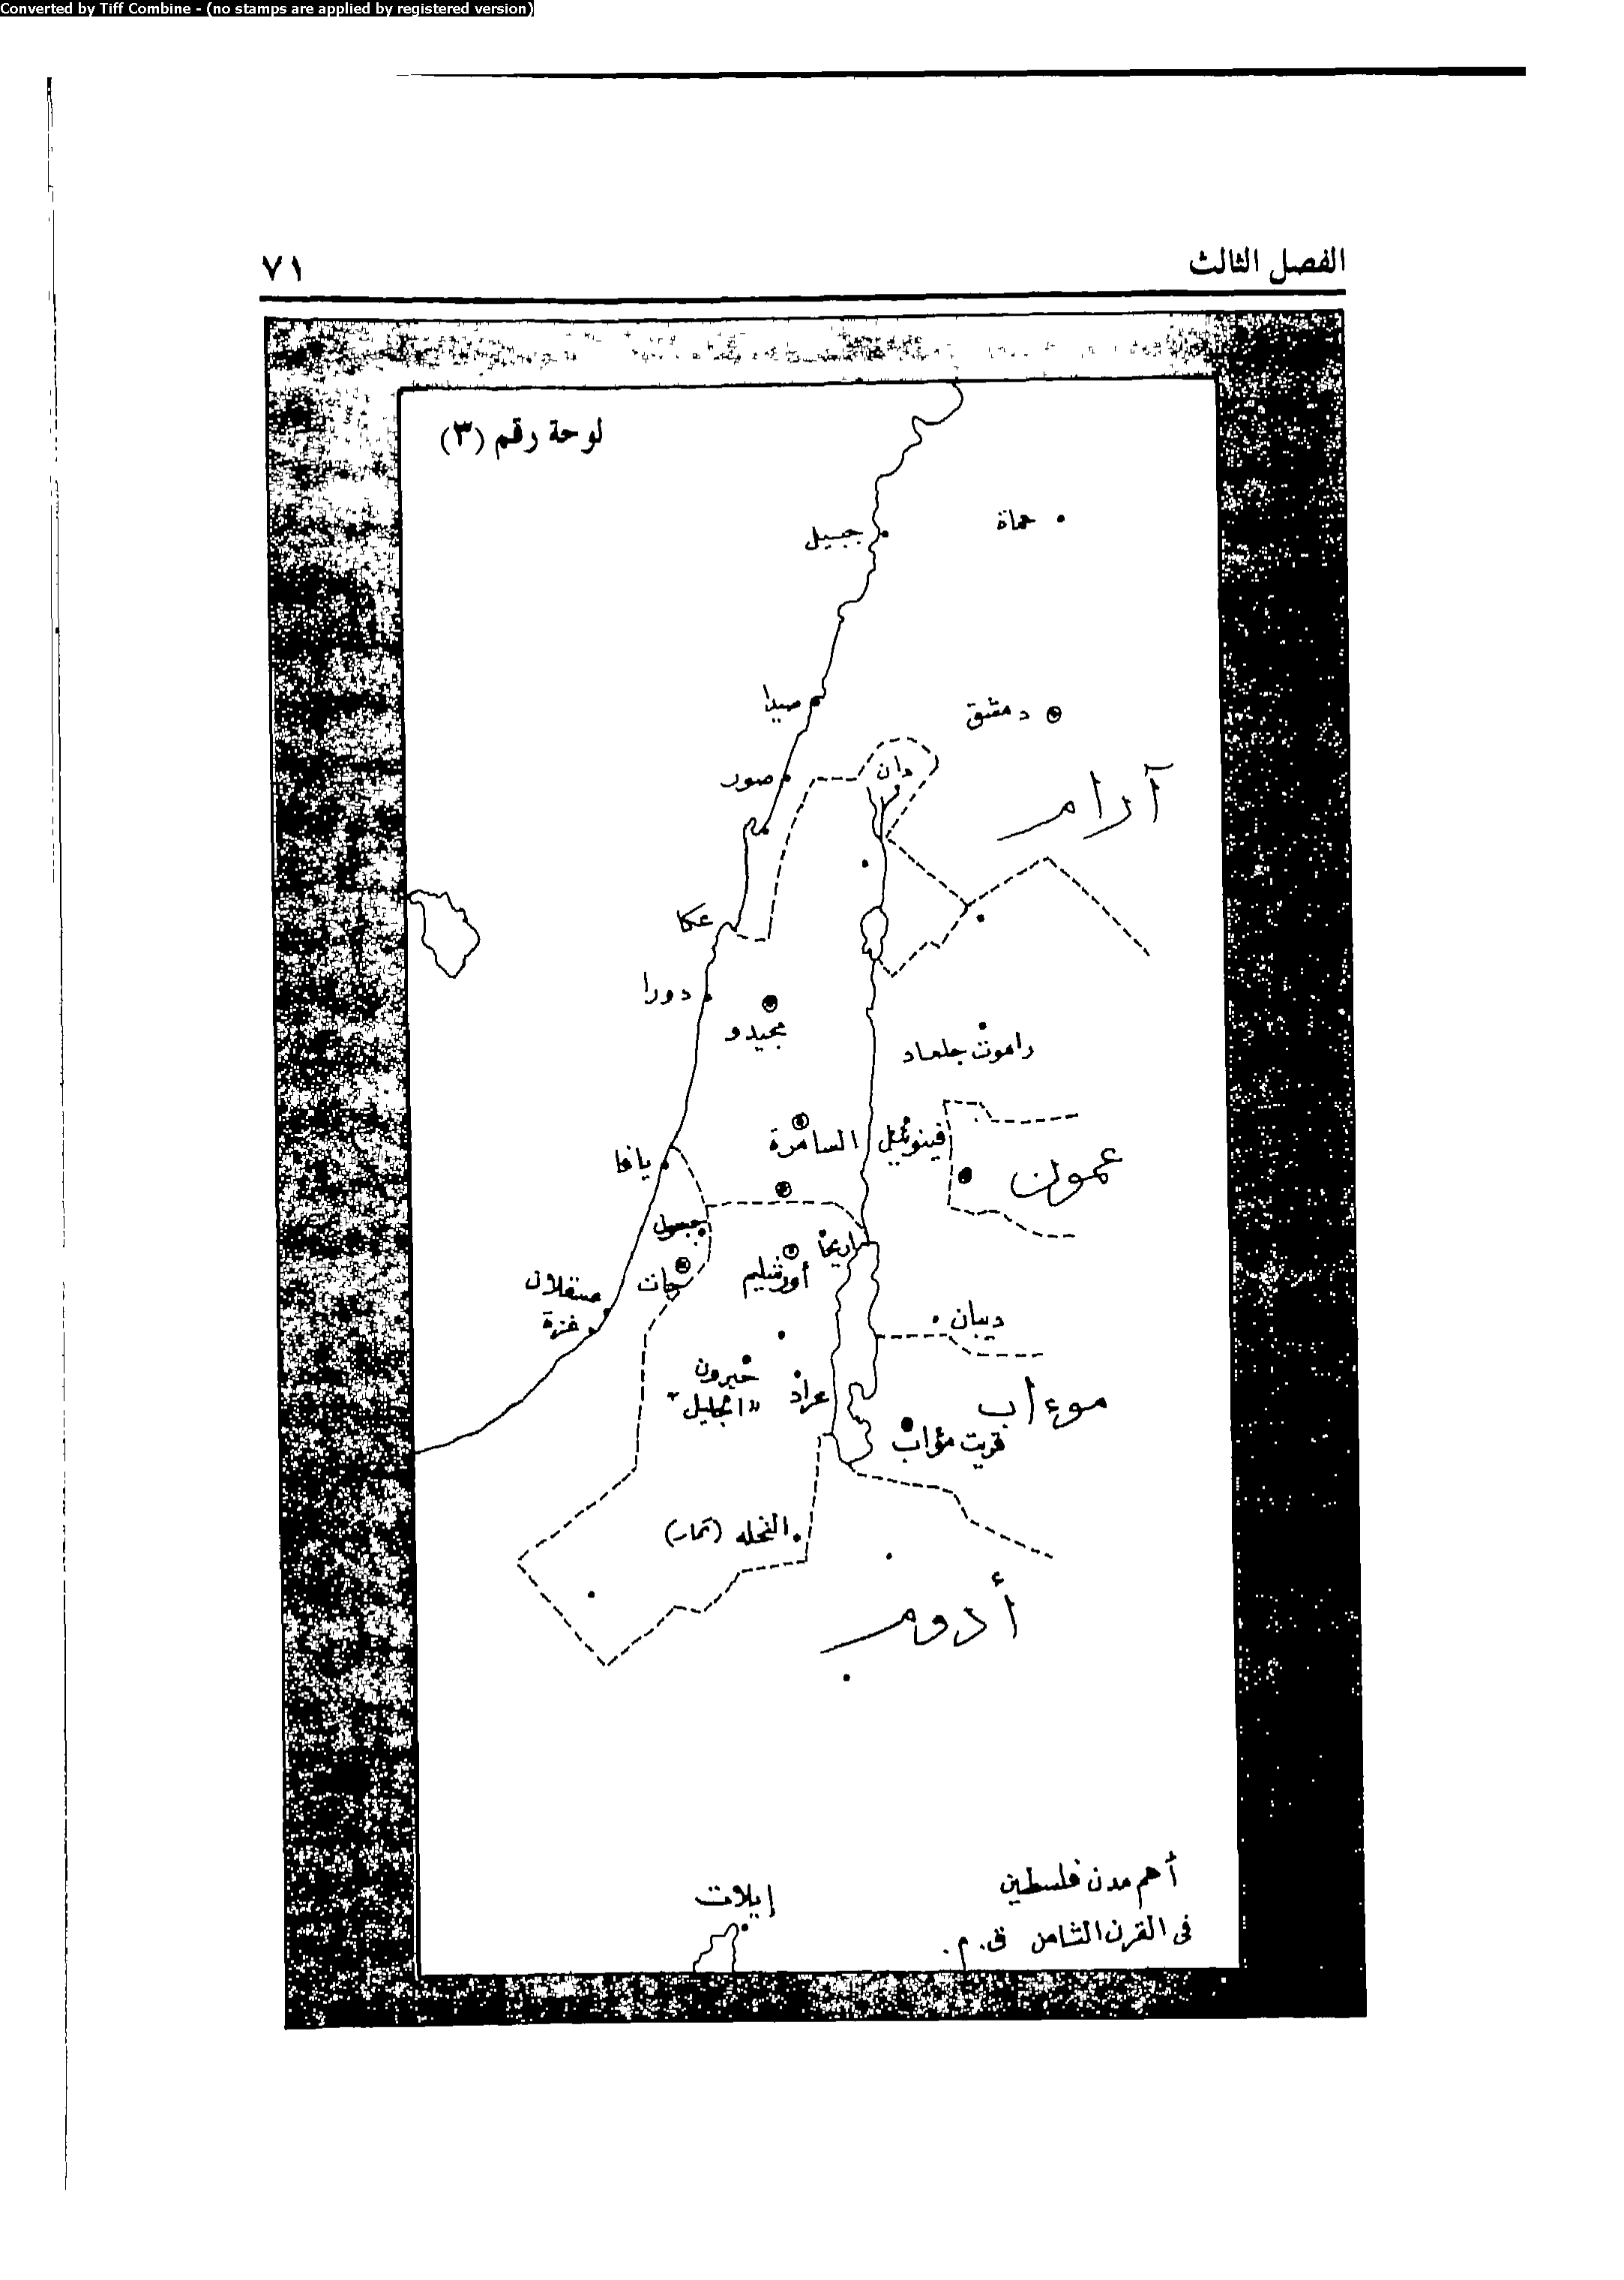 Converted by Tiff Combine - (no stamps are applied by registered version)
الفصل الثالث
٧١
لوحة رقم (٣)
حماة
جبيل
صيدا
دمشق
دان
صور
آرام
عكا
دورا
مجيدو
راموت جلعاد
السامرة
فينوئيل
عمون
يافا
اريحا
أورشليم
جات
عسقلان
غزة
ديبان
حبرون
"الخليل"
عراد
موءاب
قريت مؤاب
النخله (تمار)
أدوم
إيلات
أهم مدن فلسطين
فى القرن الثامن ق. م.